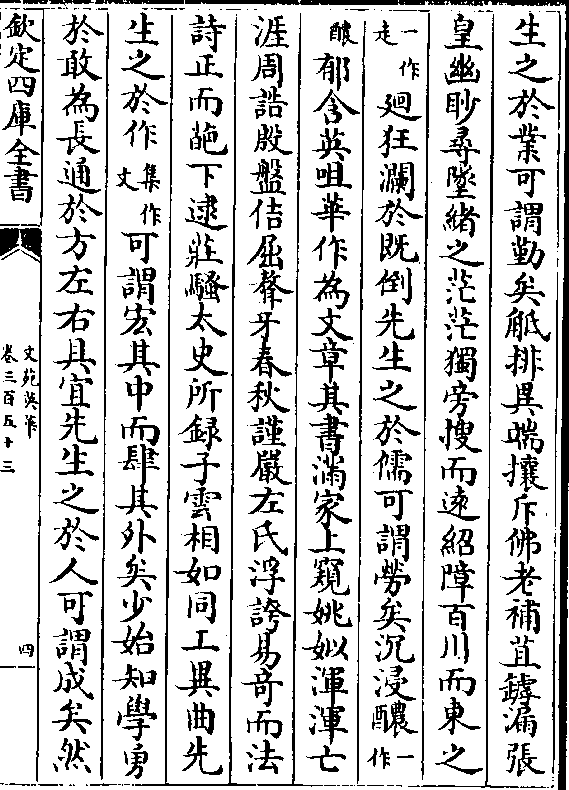 生之於業可謂勤矣觝排異端攘斥佛老補苴罅漏張
皇幽眇尋墜緒之茫茫獨旁搜而遠紹障百川而東之
一作走廻狂瀾於既倒先生之於儒可謂勞矣沉浸醲一作
醲郁含英咀華作為文章其書滿家上窺姚姒渾渾亡
涯周誥殷盤佶屈聱牙春秋謹嚴左氏浮誇易奇而法
詩正而葩下逮莊騷太史所録子雲相如同工異曲先
生之於作集作文可謂宏其中而肆其外矣少始知學勇
於敢為長通於方左右具宜先生之於人可謂成矣然
欽定四庫全書
文苑英華
卷三百五十三
四